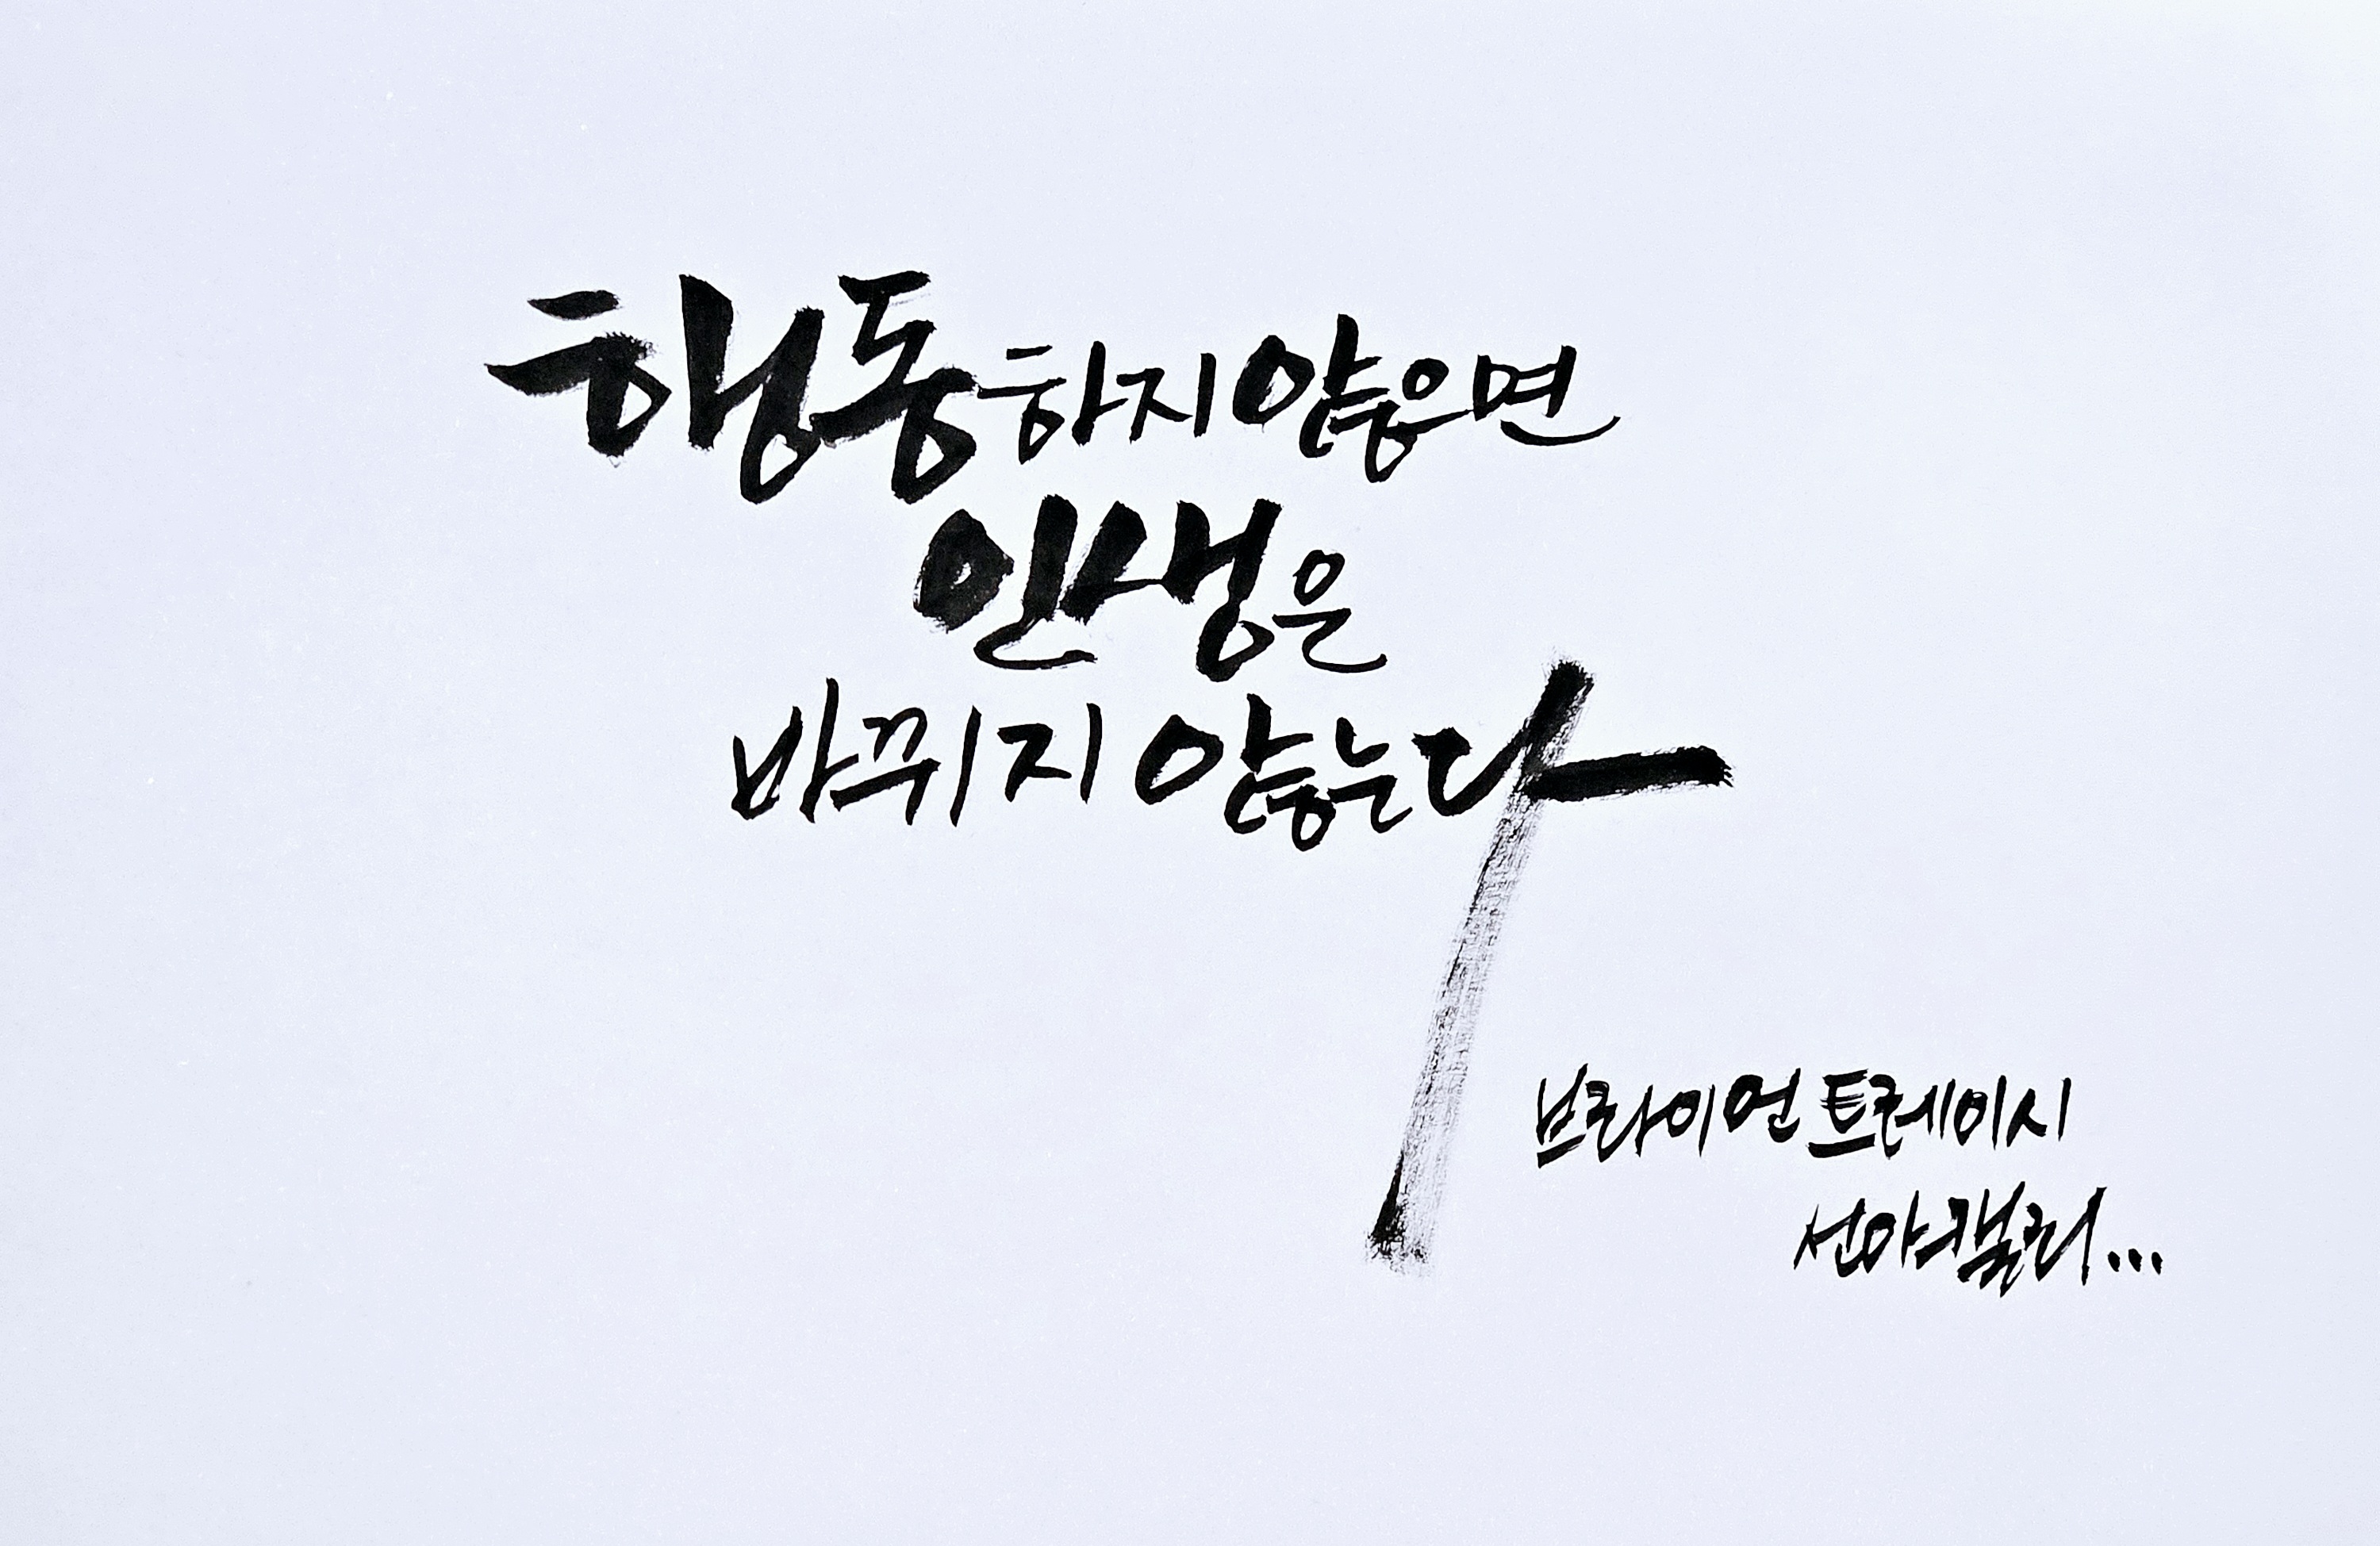 행동하지 않으면
인생은
바뀌지 않는다
브라이언 트레이시
선아캘리...